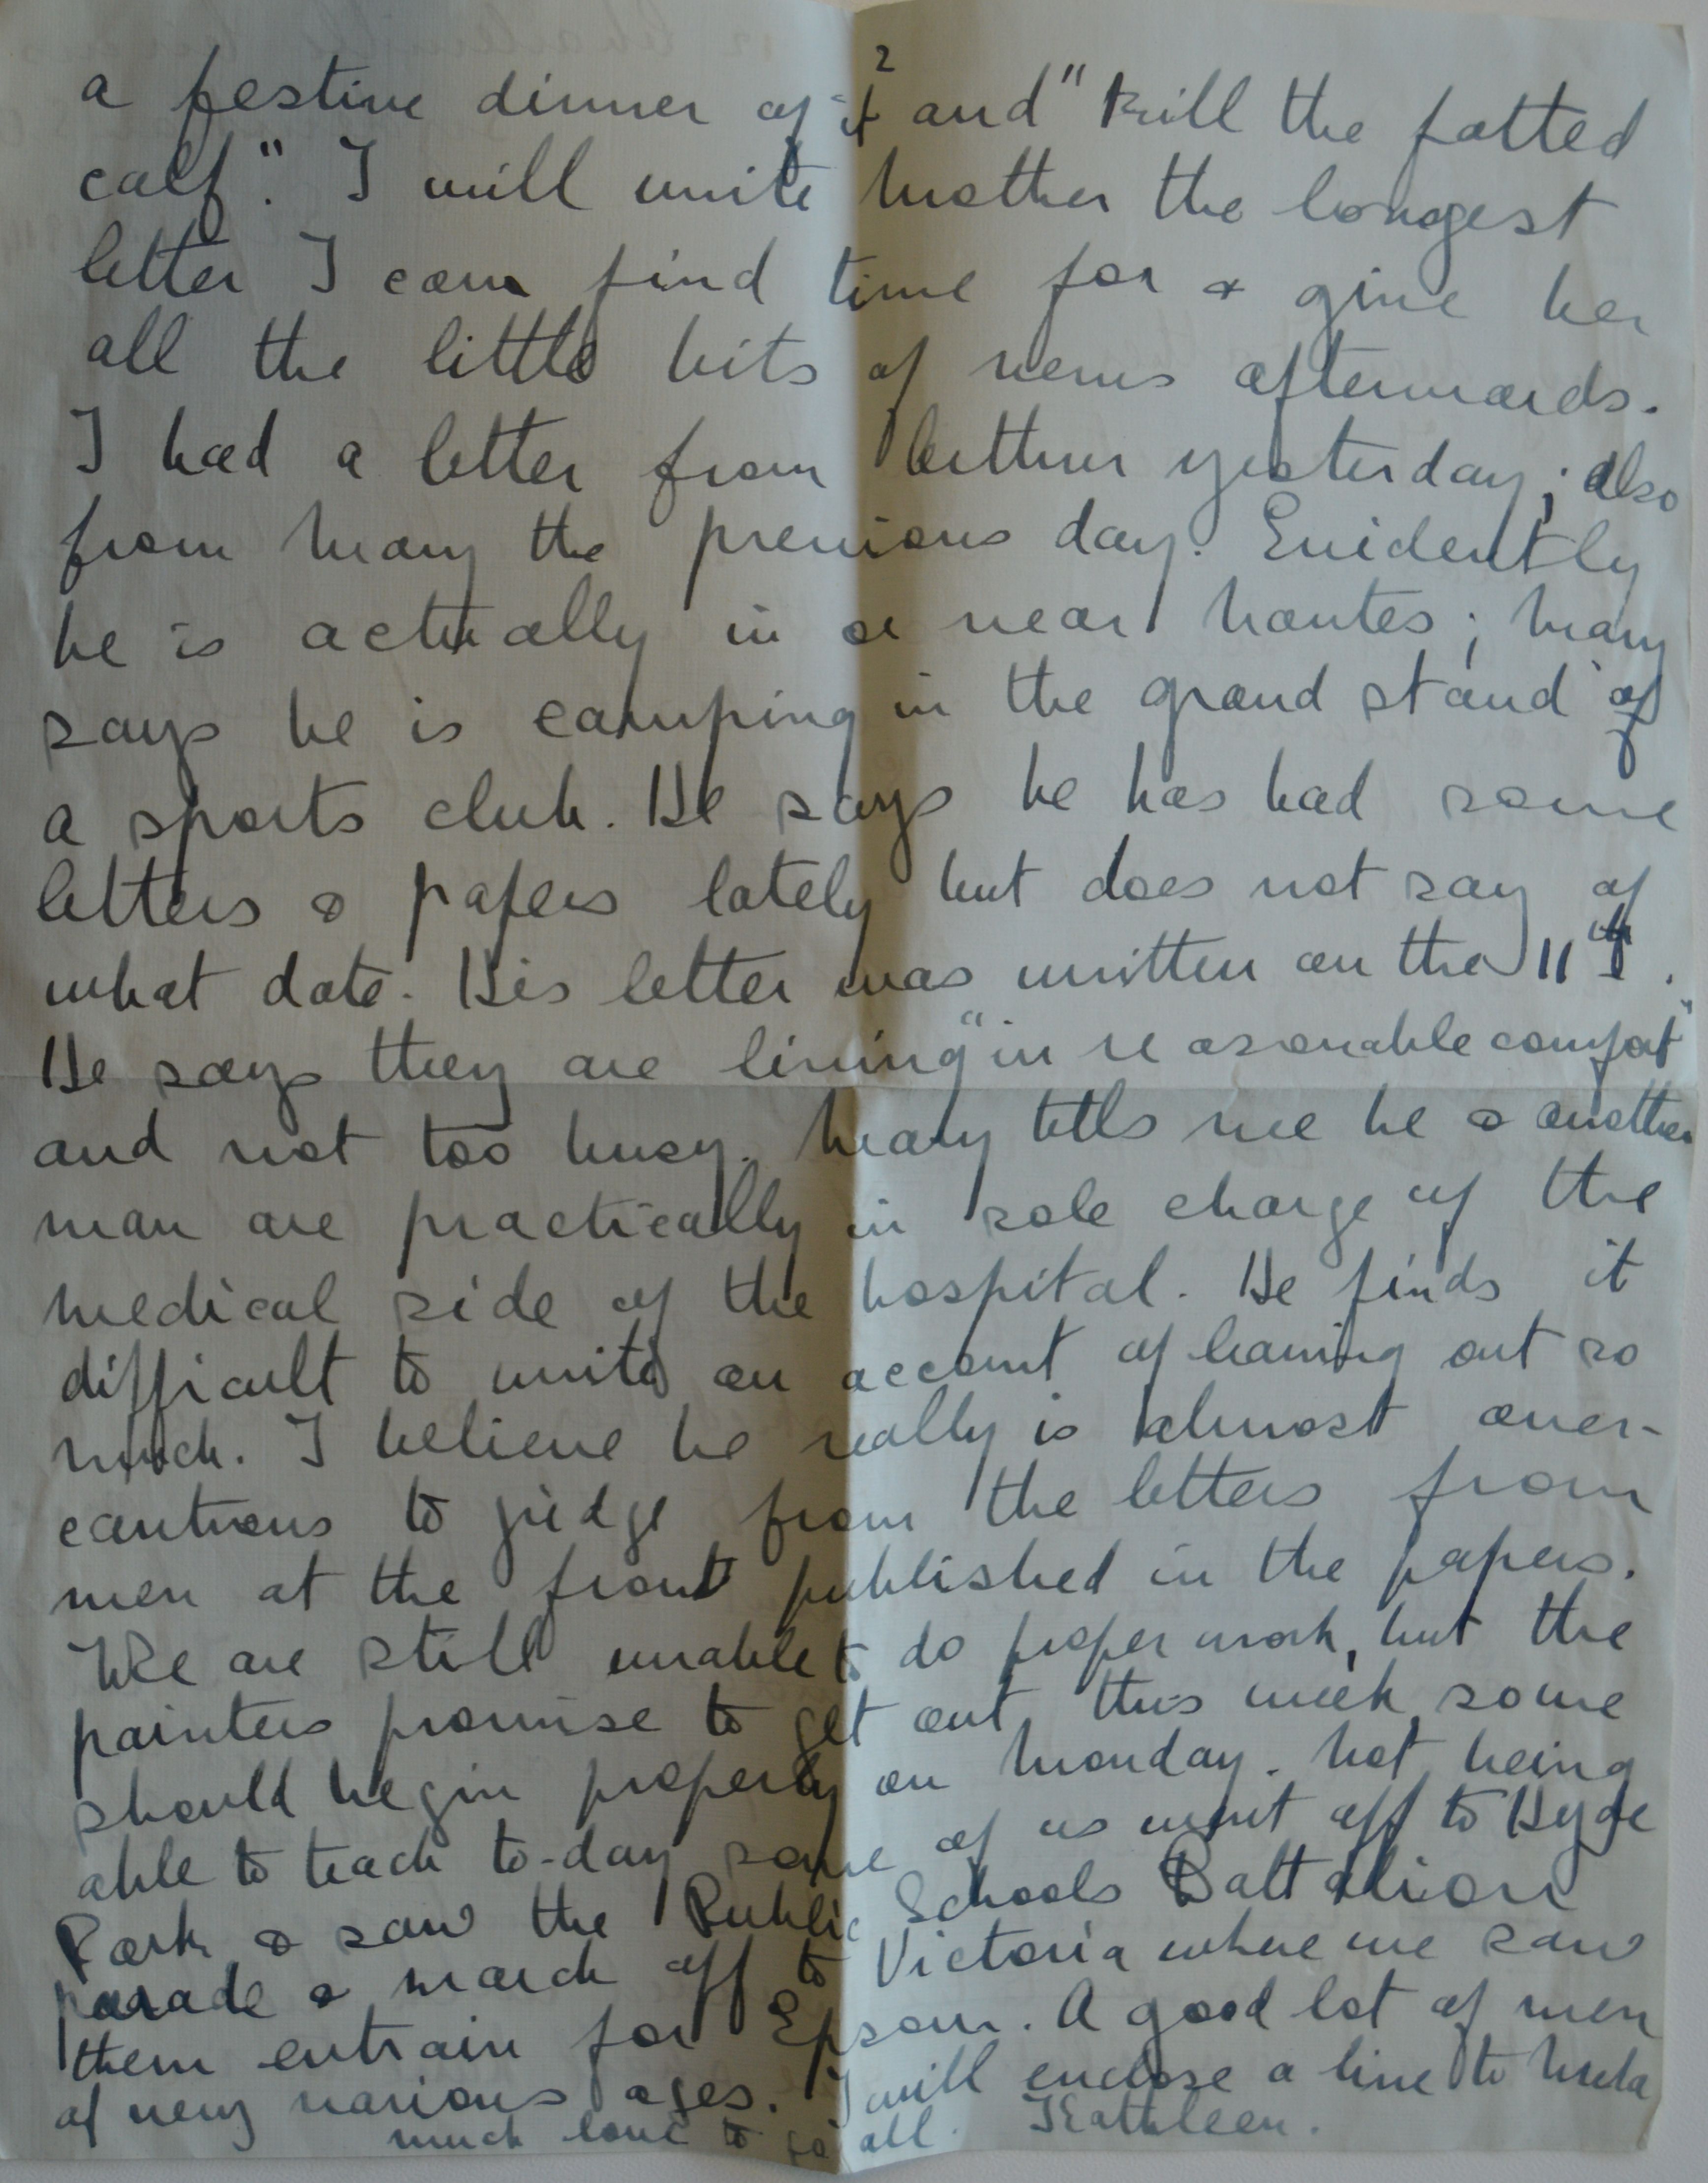 2
a festive dinner of it and "kill the fatted
calf". I will write Mother the longest
letter I can find time for & give her
all the little bits of news afterwards.
I had a letter from yesterday; also
from Mary the previous day. Evidently
he is actually in or near Nantes; Mary
says he is camping in the grand stand of
a sports club. He says he has had some
letters & papers lately but does not say of
what date. His letter was written on the 11th.
He says they are living "in reasonable comfort"
and not too busy. Mary tells me he & another
man are practically in sole charge of the
medical side of the hospital. He finds it
difficult to write on account of leaving out so
much. I believe he really is almost over-
cautious to judge from the letters from
men at the front published in the papers.
We are still unable to do proper work, but the
painters promise to get out this week, some
should begin properly on Monday. Not being
able to teach to-day some of us went off to Hyde
Park & saw the Public Schools Battalion
parade & march off to Victoria where we saw
them entrain for Epsom. A good lot of men
of very various ages. I will enclose a line to
much love to all. Kathleen.